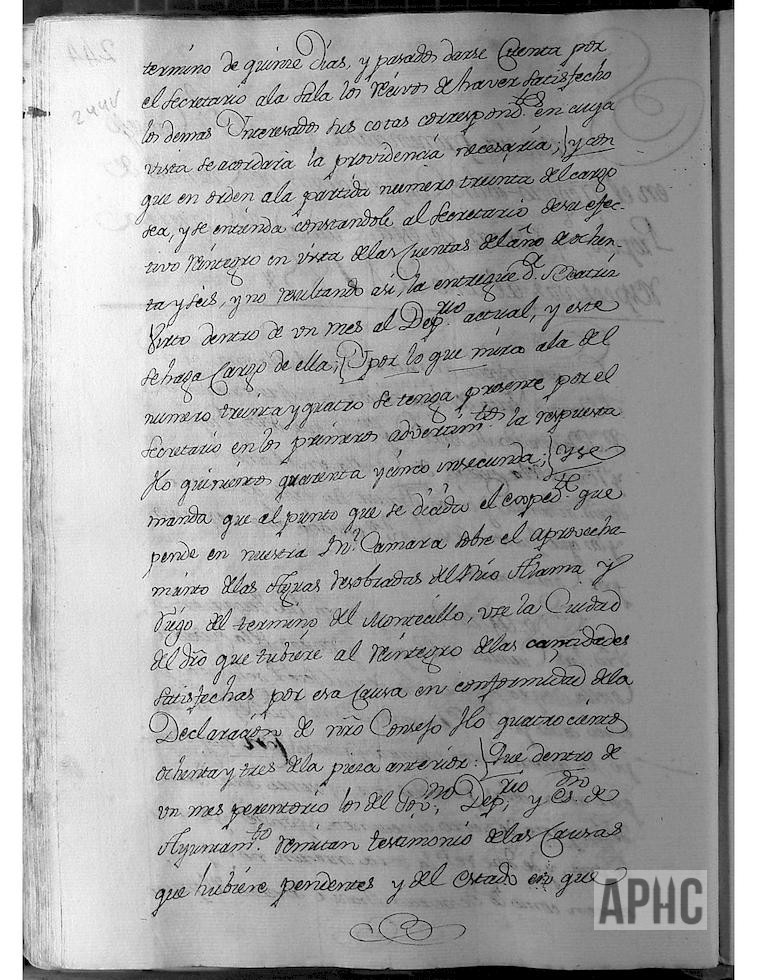 244v
termino de quinze Dias, y pasados darse Cuenta por
el Secretario ala Sala los Reĉivos de haver satisfecho
los demas Ynteresados sus cotas correspond.tes en cuya
vista se acordara la providencia necesaria; y con
que en orden ala partida numero treinta del cargo
sea, y se entienda constandole al Secretario de su efec-
tivo Reintegro en vista delas Cuentas del año de ochen-
ta y seis, y no resultando asi, la entregue d.n
dentro de vn mes al Dep.rio actual, y este
se haga Cargo de ella; Y por lo que mira ala del
numero treinta y quatro se tenga presente por el
Secretario en los primeros advertim.tos la respuesta
ffo quinientos quarenta y cinco insecunda; y se
manda que al punto que se decida el exped.te que
pende en nuestra R.l Camara sobre el aprovecha-
miento delas Aguas desobradas del Rio Alama y
Riego del termino del Montecillo, vse la Ciudad
del dro que tubiere al Reintegro delas cantidades
satisfechas por esa Causa en conformidad dela
Declaraĉion de nro Consejo ffo quatrocientos
ochenta y tres dela pieza anterior: Que dentro de
vn mes perentorio los del Gov.no, Dep.rio y Es.no de
Ayuntam.to Remitan testimonio delas Causas
que hubiere pendentes y del estado en que
APHC